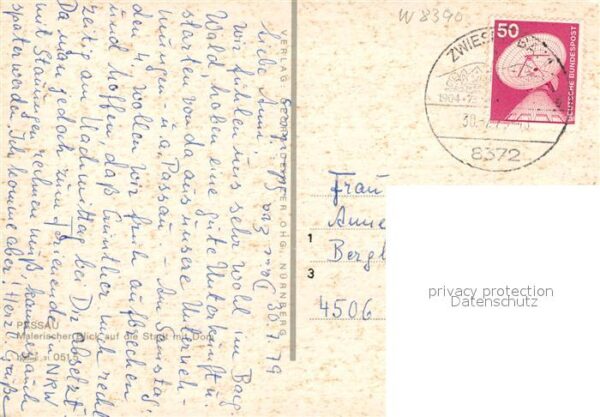 W 8390
50
DEUTSCHE BUNDESPOST
ZWIES
1904-
30.
8372
VERLAG GEORG HOEPFER OHG, NÜRNBERG
30.7.79
Liebe Anni!
Wir fühlen uns sehr wohl im Bay.
Wald, haben eine gute Unterkunft u.
starten von da aus unsere Unterneh-
mungen – u.a. Passau. – Am Samstag,
den 4. wollen wir früh aufbrechen
und hoffen, daß Günther mich recht
zeitig am Nachmittag bei Dir absetzt.
Da man jedoch zum Ferienende in NRW
mit Stauungen rechnen muß, kann es auch
später werden. Ich komme aber! Herzl. Grüße
PASSAU
Malerischer Blick auf die Stadt mit Dom
051
Frau
Anne
Bergl
1
3
4506
privacy protection
Datenschutz